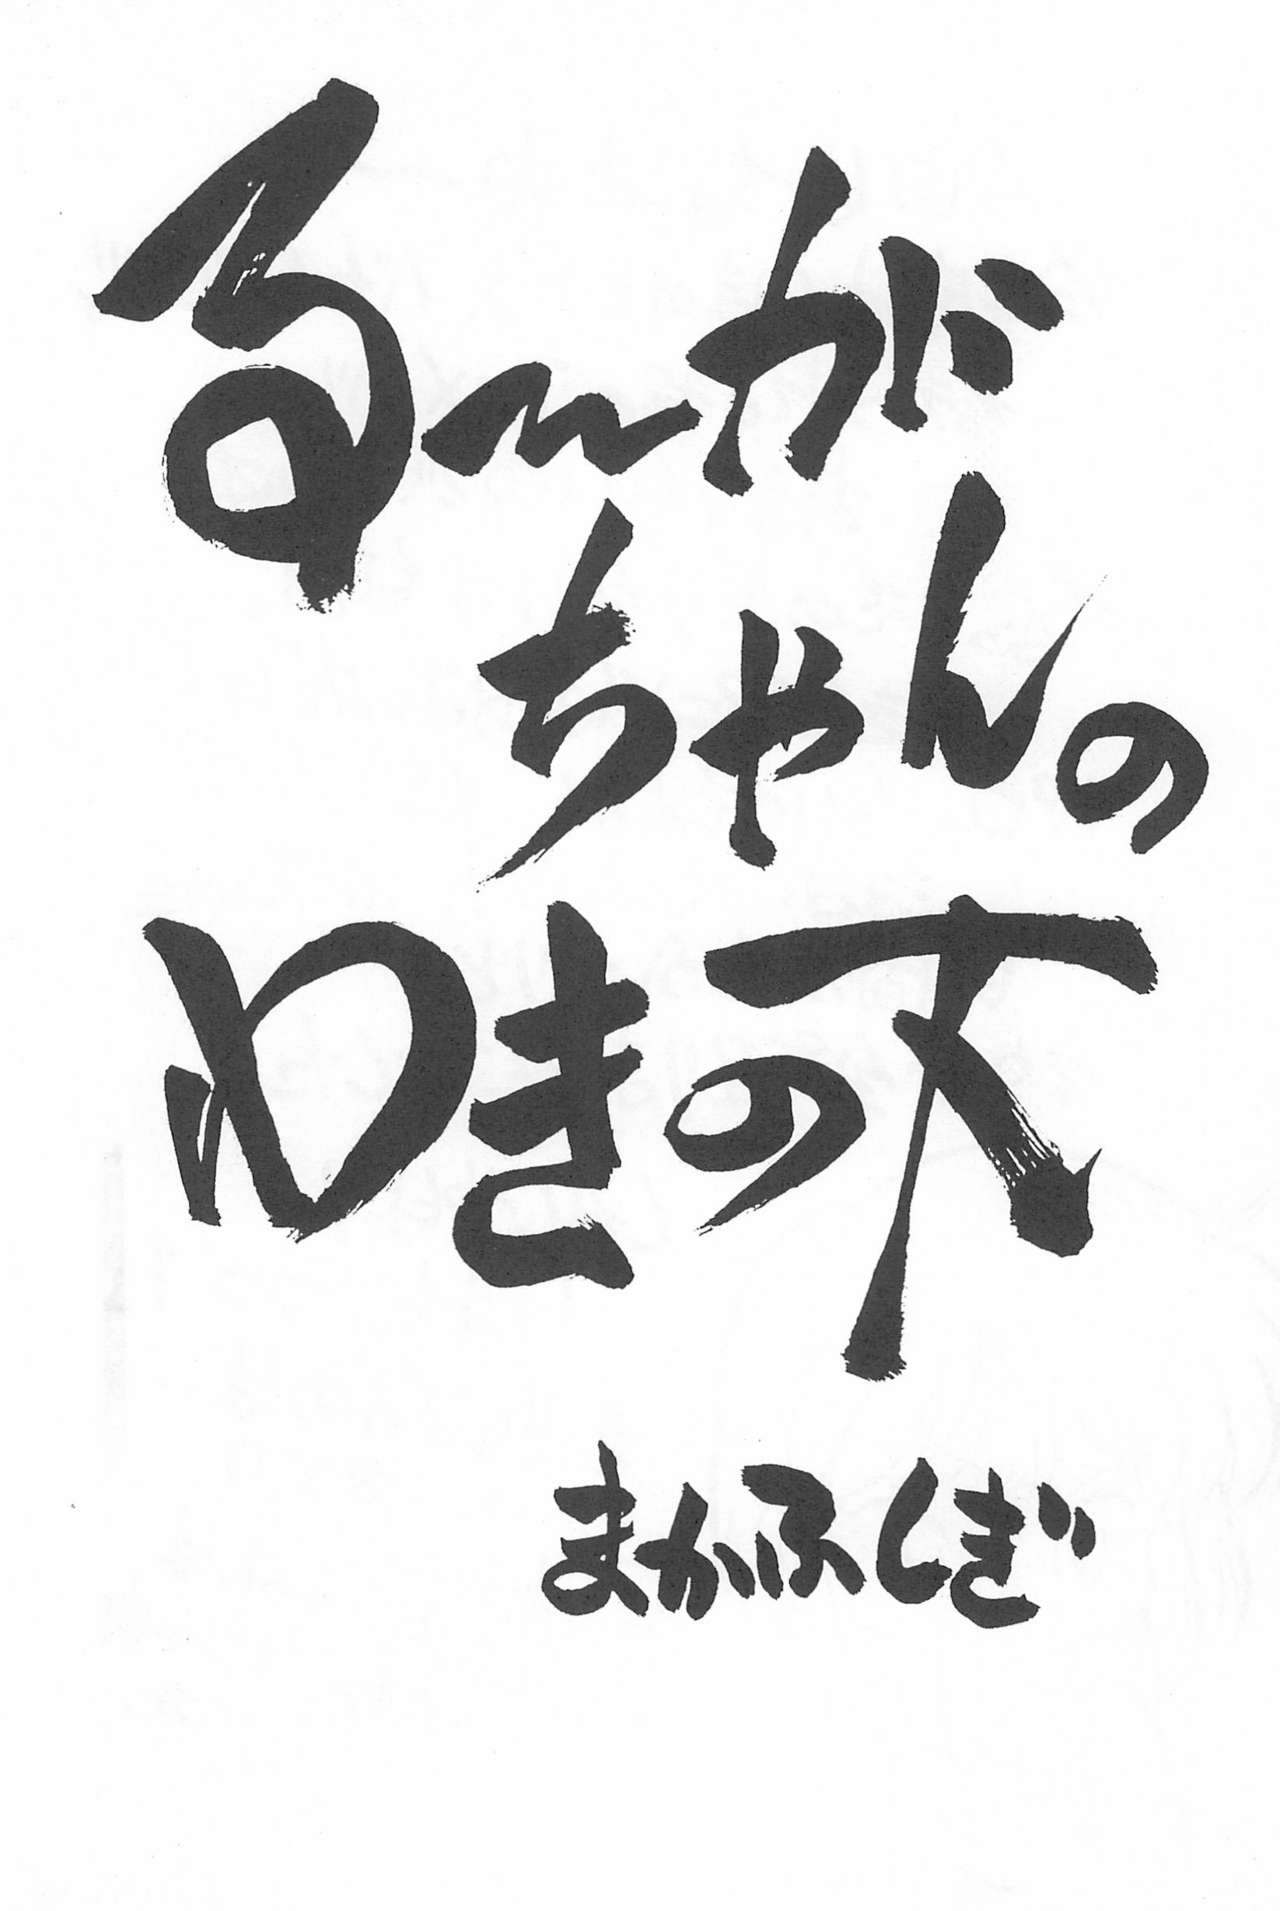 る〜が
ちゃんの
ゆきの下
まかふしぎ